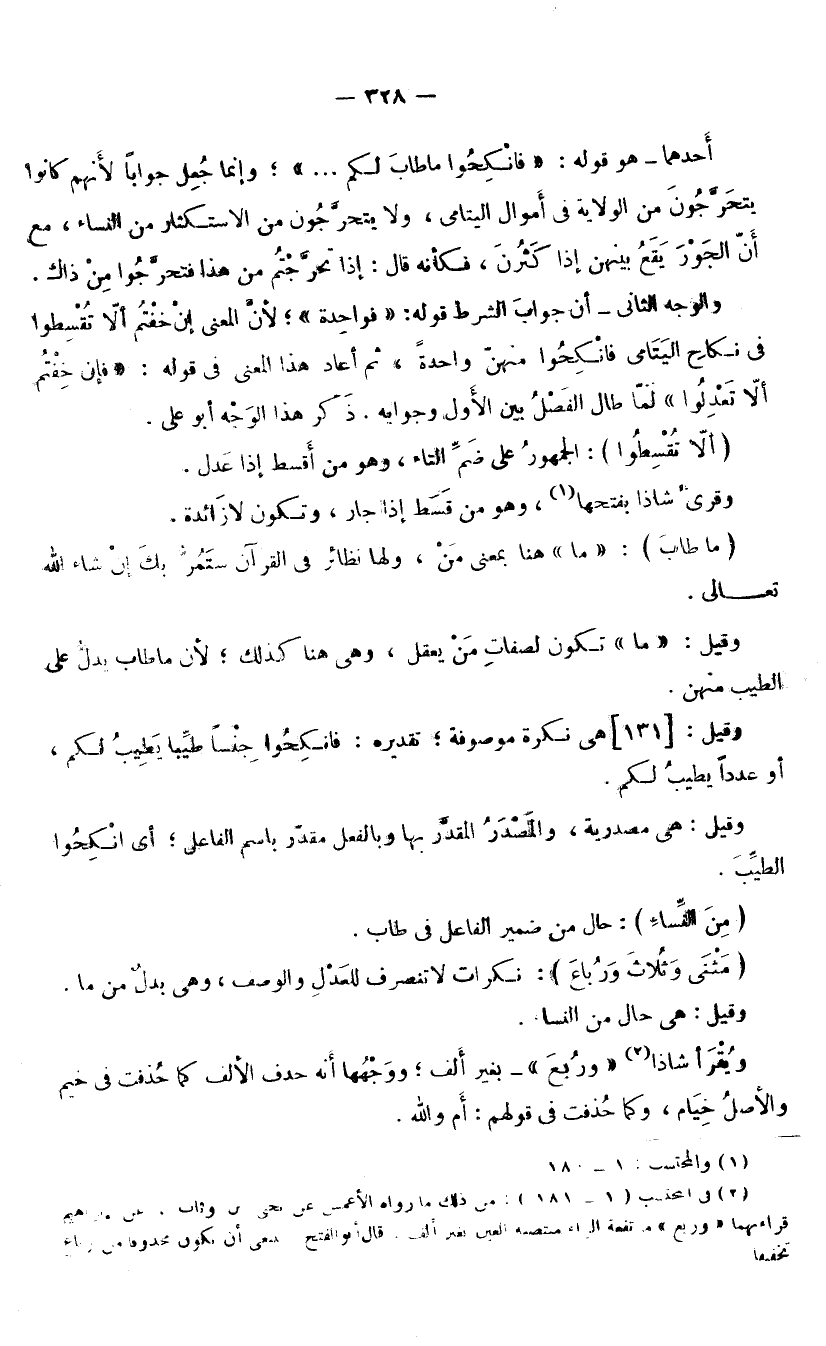 — ٣٢٨ —
أَحدهما ـ هو قوله : « فانْكِحُوا ماطابَ لكم ... » ؛ وإنما جُعِل جواباً لأَنهم كانوا
يتحَرَّجُونَ من الولاية فى أموال اليتامى ، ولا يتحرجُون من الاستكثار من النساء ، مع
أنّ الجَوْرَ يَقَعُ بينهن إذا كَثُرنَ ، فكأنه قال : إذا تحرَّجْتُم من هذا فتحرَّجُوا مِنْ ذاك .
والوجه الثانى ـ أن جوابَ الشرط قوله: « فواحِدة » ؛ لأنَّ المعنى إنْ خفْتُم ألّا تُقْسِطوا
فى نكاح اليَتَامى فانْكِحُوا منهنّ واحدةً ، ثم أعاد هذا المعنى فى قوله : « فإن خِفْتُم
ألّا تَعْدِلُوا » لَمّا طال الفَصْلُ بين الأَول وجوابه . ذَكر هذا الوَجْه أبو على .
( ألّا تُقْسِطُوا ) : الجمهورُ على ضَمِّ التاء ، وهو من أَقسط إذا عَدل .
وقرىء شاذا بفتحها(١) ، وهو من قَسَط إذا جار ، وتكون لا زَائدة .
( ما طابَ ) : « ما » هنا بمعنى مَنْ ، ولها نظائر فى القرآن ستَمُرّ بكَ إنْ شاء الله
تعالى .
وقيل : « ما » تكون لصفاتِ مَنْ يعقل ، وهى هنا كذلك ؛ لأن ماطاب يدلُّ على
الطيب منهن .
وقيل : [١٣١] هى نكرة موصوفة ؛ تقديره : فانكِحُوا جِنْساً طيِّبا يَطيبُ لكم ،
أو عدداً يطيبُ لكم .
وقيل : هى مصدرية ، والمَصْدَرُ المقدَّر بها وبالفعل مقدّر باسم الفاعل ؛ أى انْكِحُوا
الطيِّبَ .
( مِنَ النِّساءِ ) : حال من ضمير الفاعل فى طاب .
( مَثْنَى وَثُلاثَ وَرُباعَ ) : نكرات لاتنصرف للعَدْلِ والوصف ، وهى بدلٌ من ما .
وقيل : هى حال من النسا .
ويُقْرَأ شاذا(٢) « ورُبعَ » ـ بغير أَلف ؛ ووَجْهُها أنه حدف الألف كما حُذفت فى خيم
والأصلُ خِيَام ، وكما حُذفت فى قولهم : أَم والله .
(١) والمحتسب : ١ ـ ١٨٠
(٢) فى المحتسب ( ١ ـ ١٨١ ) : من ذلك ما رواه الأعمش عن يحيى بن وثاب
قراءتهما « وربع » مرتفعة الراء منتصبة العين بغير ألف . قال أبو الفتح ينبغى أن يكون محذوفا من رباع
تخفيفا